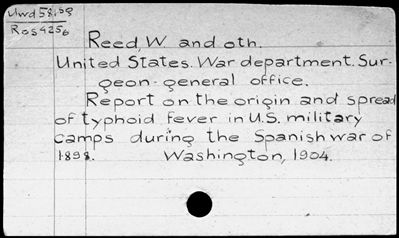 Uwd58.r9
Ros4256
Reed, W and oth.
United States. War department. Sur-
geon-general office.
Report on the origin and spread
of typhoid fever in U.S. military
camps during the Spanish war of
1898. Washington, 1904.